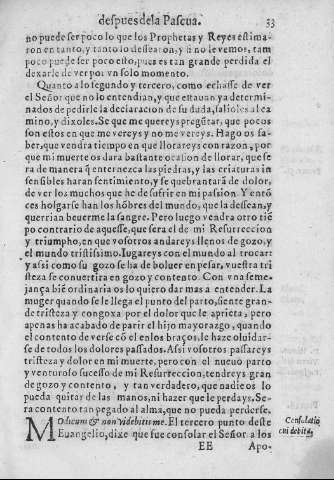 despues dela Pascua. 33
no puede ser poco lo que los Prophetas y Reyes estima-
ron en tanto, y tanto lo dessearon, y si no le vemos, tam
poco puede ser poco esto, pues es tan grande perdida el
dexarle de ver por vn solo momento.
Quanto a lo segundo y tercero, como echasse de ver
el Señor que no lo entendian, y que estauan ya determi-
nados de pedirle la declaracion de su duda, salioles al ca
mino, y dixoles. Se que me quereys pregũtar, que pocos
son estos en que me vereys y no me vereys. Hago os sa-
ber, que vendra tiempo en que llorareys con razon, por
que mi muerte os dara bastante ocasion de llorar, que se
ra de manera q̃ enternezca las piedras, y las criaturas in
sensibles haran sentimiento, y se quebrantará de dolor,
de ver los muchos que he de sufrir en mi passion. Y entõ
ces holgarse han los hõbres del mundo, que la dessean, y
querrian beuerme la sangre. Pero luego vendra otro tiẽ
po contrario de aquesse, que sera el de mi Resurreccion
y triumpho, en que vosotros andareys llenos de gozo, y
el mundo tristissimo. Iugareys con el mundo al trocar:
y assi como su gozo se ha de boluer en pesar, vuestra tri
steza se conuertira en gozo y contento. Con vna seme-
jança biẽ ordinaria os lo quiero dar mas a entender. La
muger quando se le llega el punto del parto, siente gran-
de tristeza y congoxa por el dolor que le aprieta; pero
apenas ha acabado de parir el hijo mayorazgo, quando
el contento de verse cõ el en los braços, le haze oluidar-
se de todos los dolores passados. Assi vosotros passareys
tristeza y dolor en mi muerte, pero con el nueuo parto
y venturoso sucesso de mi Resurreccion, tendreys gran
de gozo y contento, y tan verdadero, que nadie os lo
pueda quitar de las manos, ni hazer que le perdays. Se-
ra contento tan pegado al alma, que no pueda perderse.
Modicum & non videbitis me. El tercero punto deste
Euangelio, dize que fue consolar el Señor a los
Consolatio
cui debita.
EE Apo-